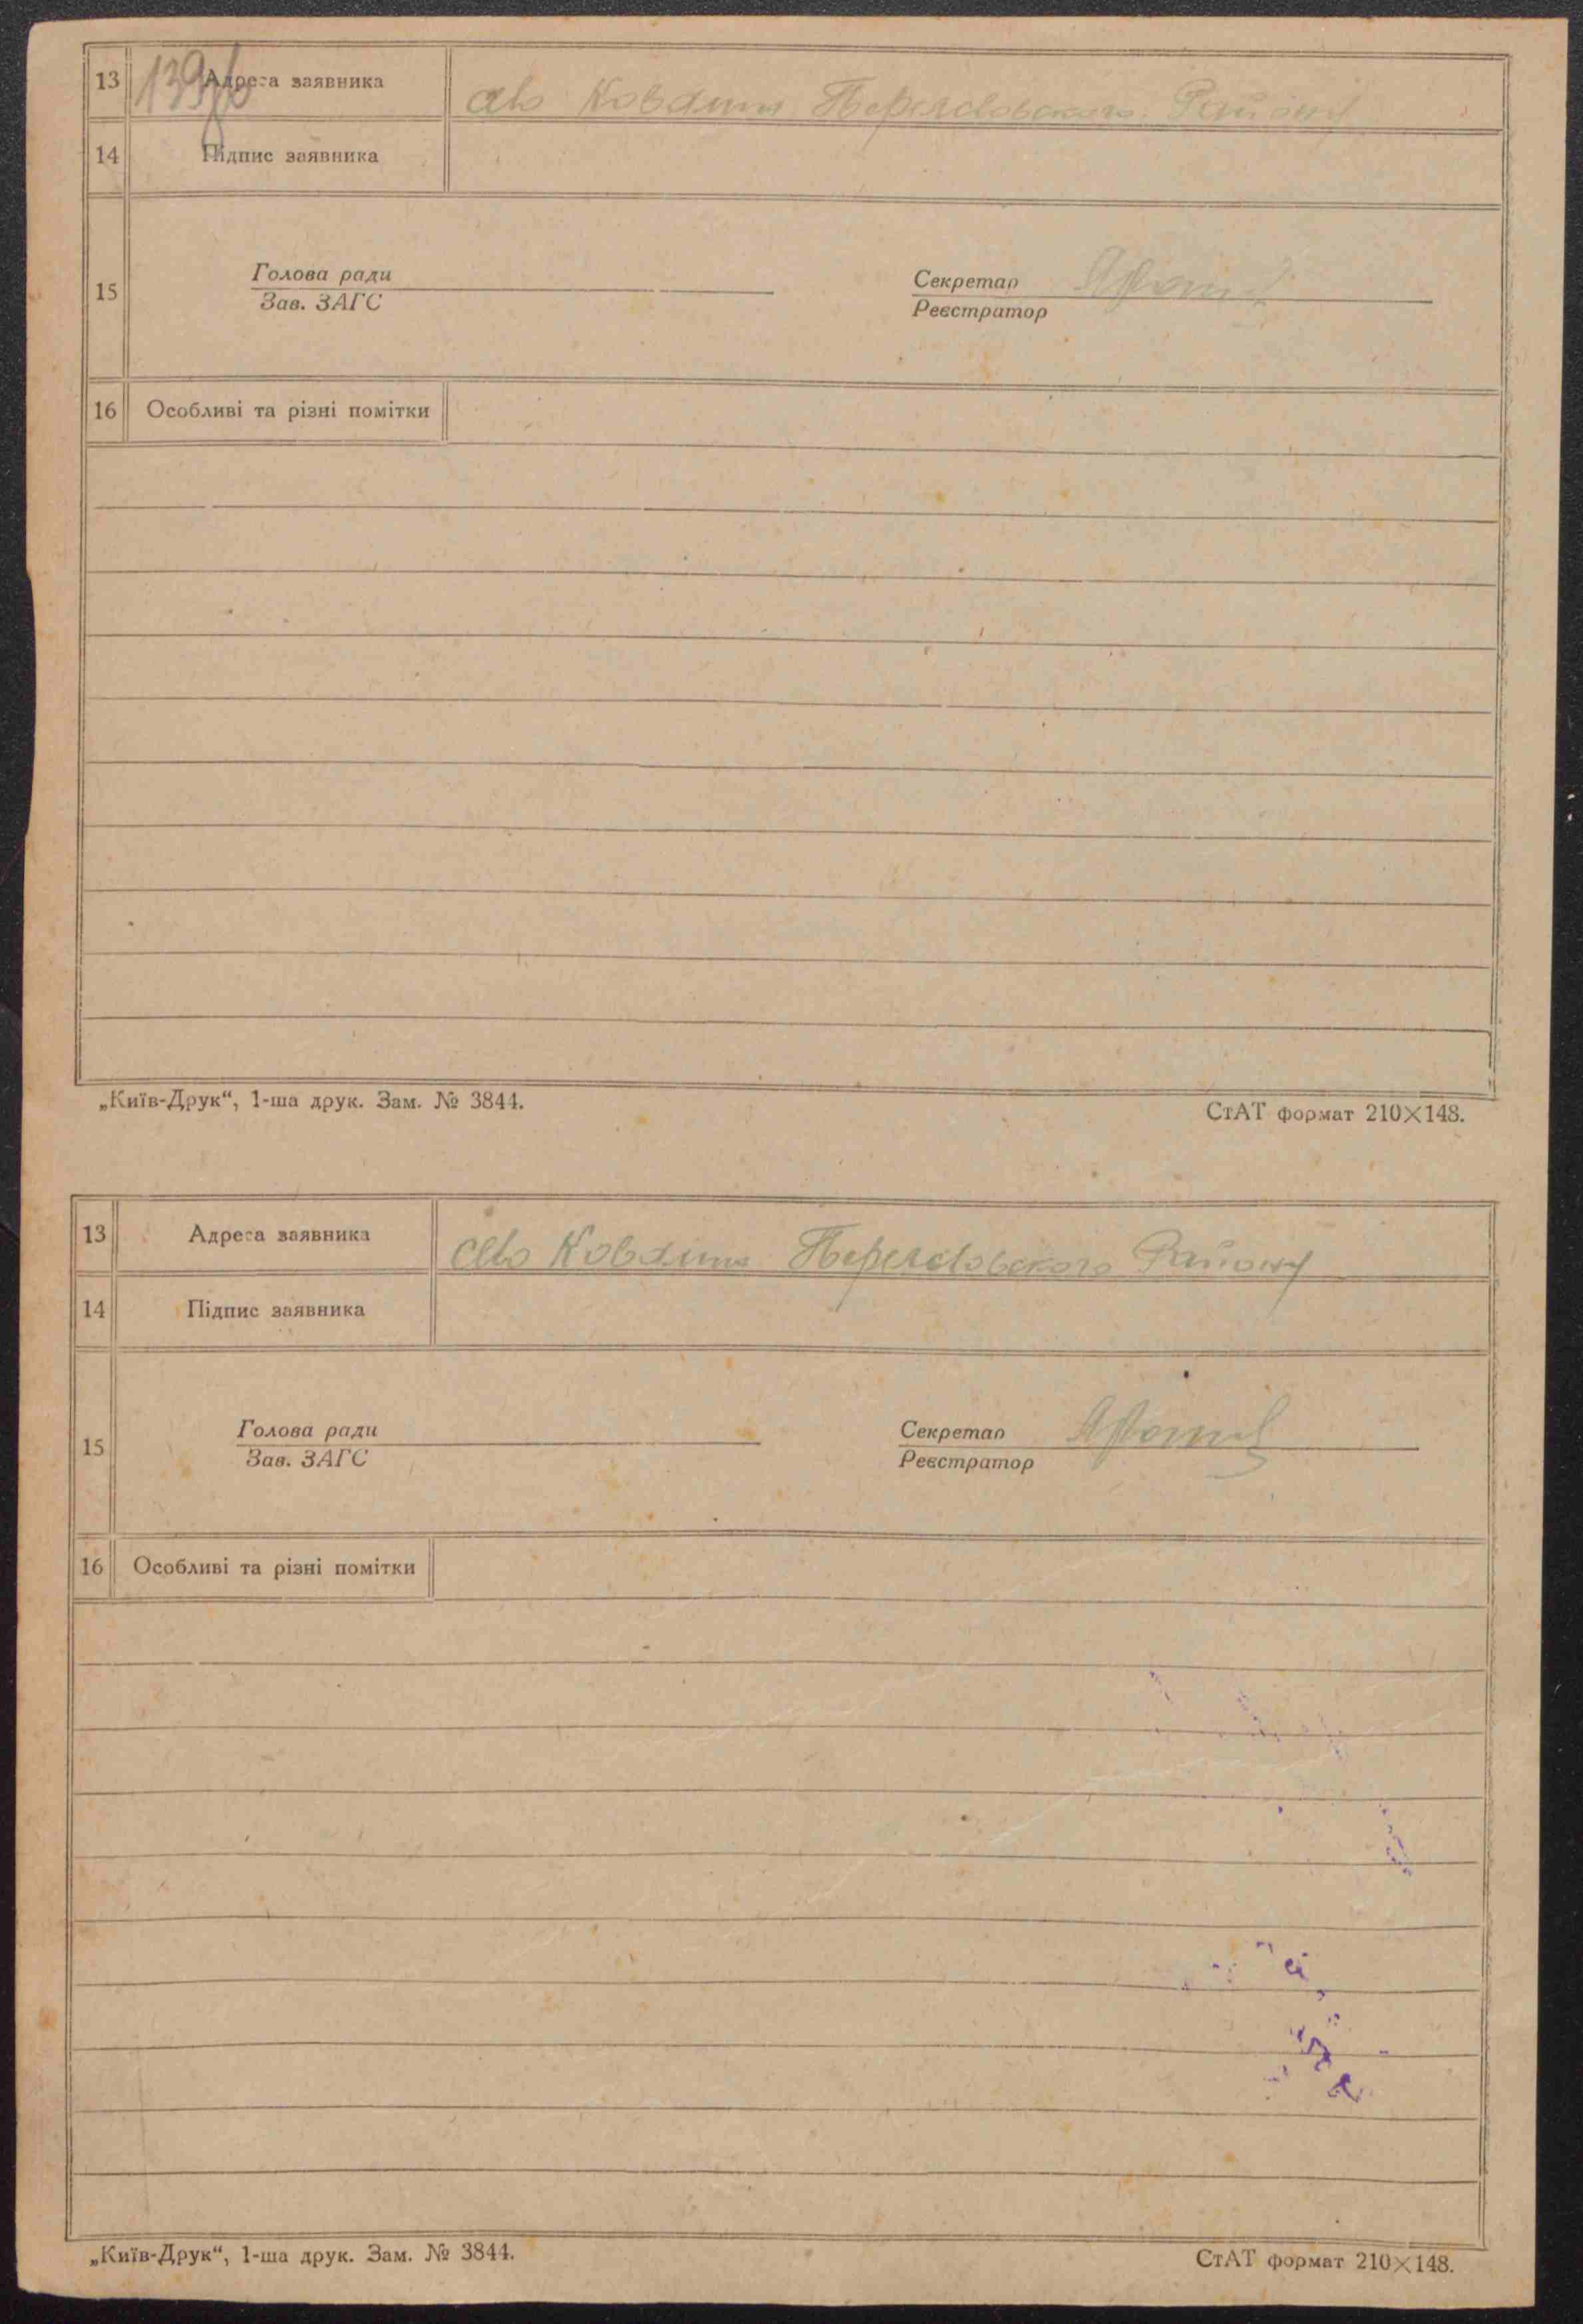 139зв
13 Адреса заявника село Ковалин Переяславского Району
14 Підпис заявника
15 Голова ради Секретар
Зав. ЗАГС Реєстратор
16 Особливі та різні помітки
„Київ-Друк“, 1-ша друк. Зам. № 3844. СтАТ формат 210×148.
13 Адреса заявника село Ковалин Переяславского Району
14 Підпис заявника
15 Голова ради Секретар
Зав. ЗАГС Реєстратор
16 Особливі та різні помітки
„Київ-Друк“, 1-ша друк. Зам. № 3844. СтАТ формат 210×148.